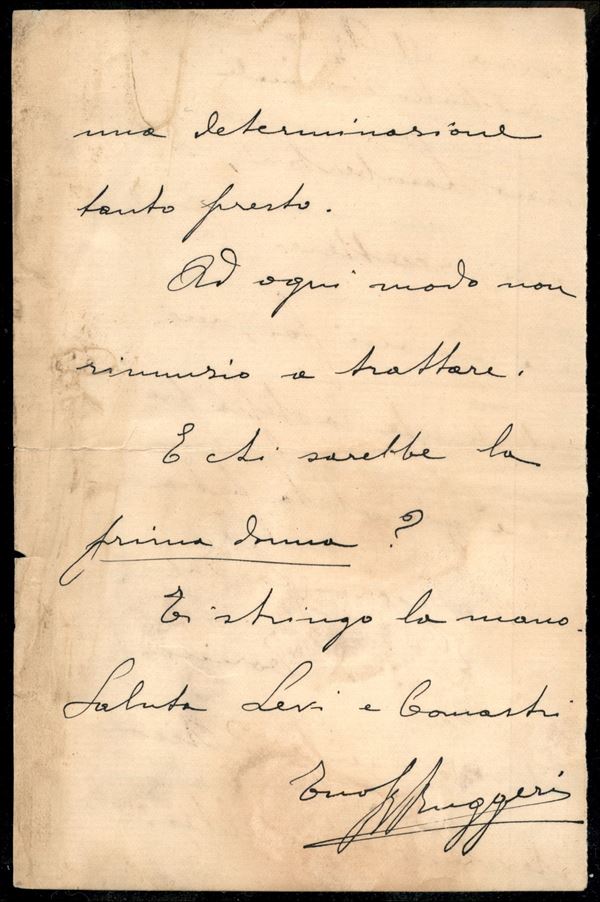 una determinazione
tanto presto.
Ad ogni modo non
rinunzio a trattare.
E chi sarebbe la
prima donna?
Ti stringo la mano.
Saluta Levi e Comastri
Tuo Ruggeri